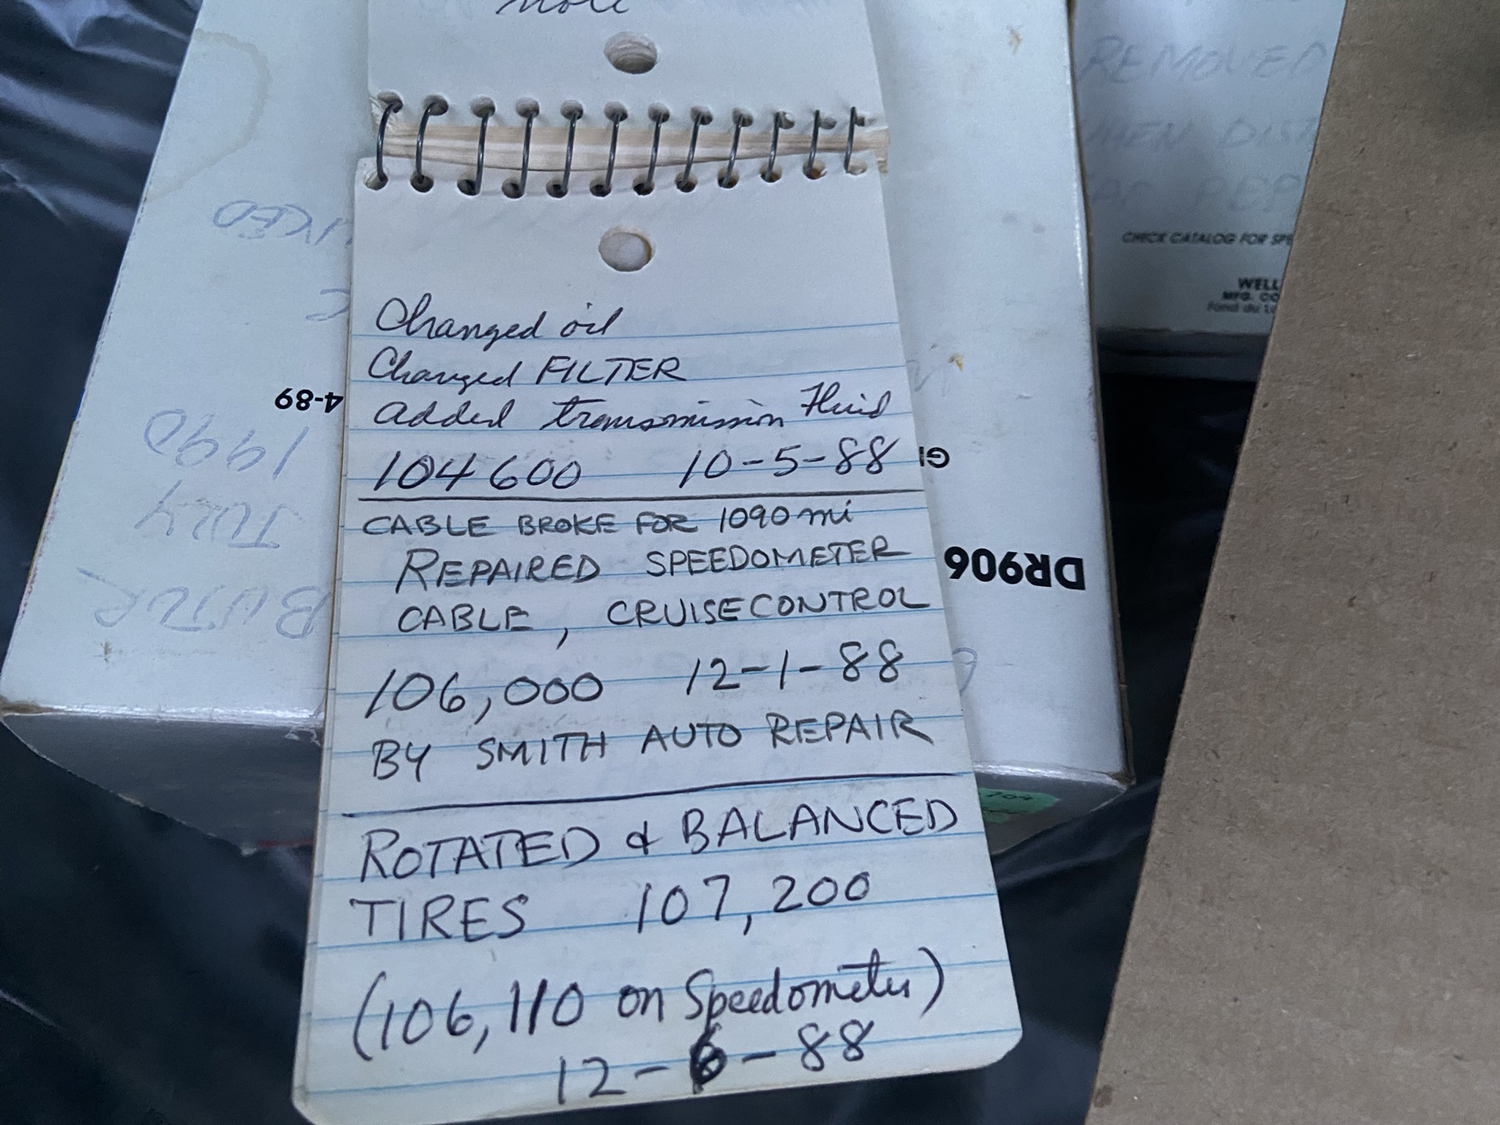 note
Changed oil
Changed FILTER
added transmission Fluid
104600 10-5-88
CABLE BROKE FOR 1090 mi
REPAIRED SPEEDOMETER
CABLE, CRUISECONTROL
106,000 12-1-88
BY SMITH AUTO REPAIR
ROTATED & BALANCED
TIRES 107,200
(106,110 on Speedometer)
12-6-88
REMOVED
WHEN DIST
CHECK CATALOG FOR SPE
WELL
MFG. CO
Fond du L
DR906
4-89
BUTUR
JULY
1990